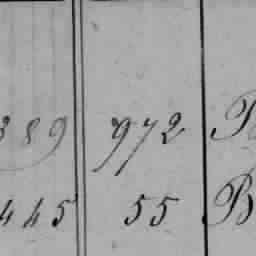 389 972
445 55 B